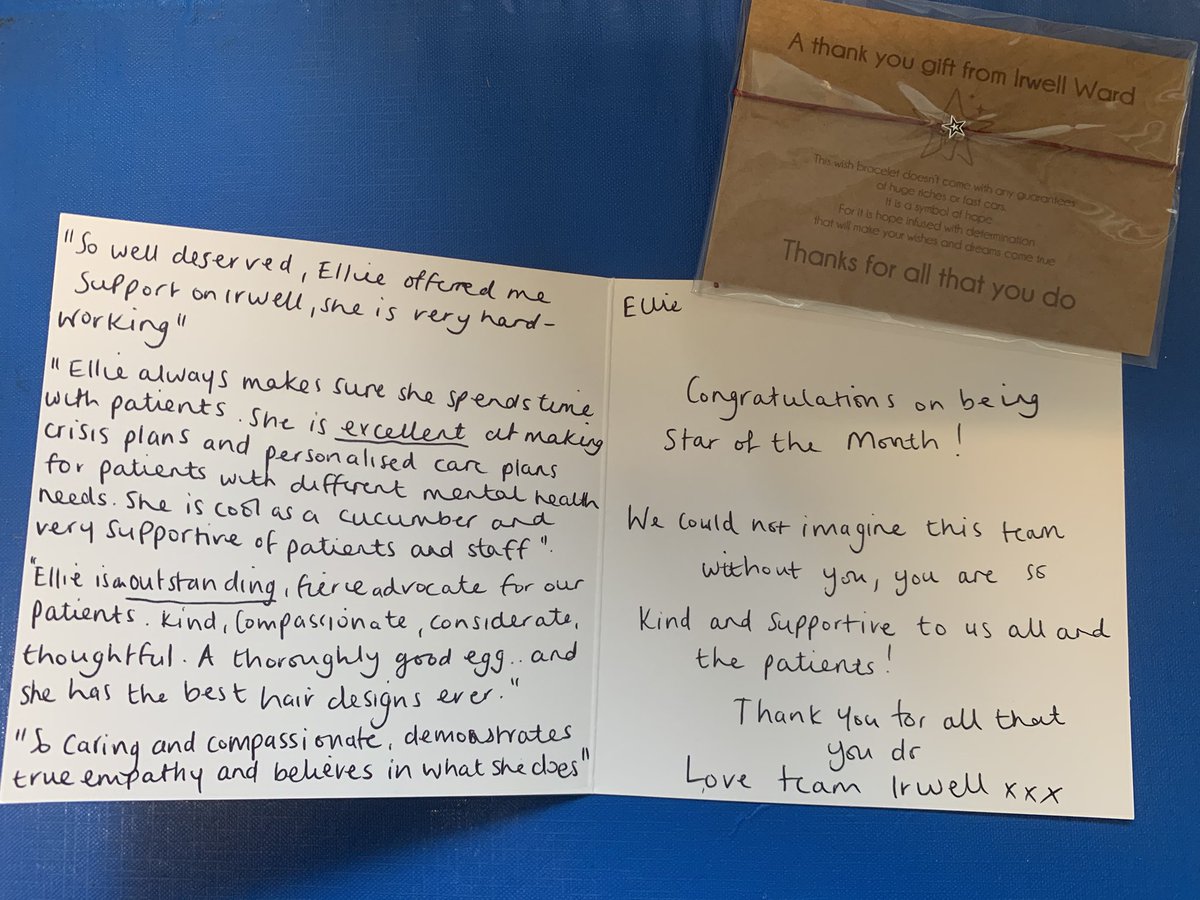 A thank you gift from Irwell Ward
This wish bracelet doesn't come with any guarantees
of huge riches or fast cars.
It is a symbol of hope.
For it is hope infused with determination
that will make your wishes and dreams come true
Thanks for all that you do
"So well deserved, Ellie offered me
Support on Irwell, she is very hard-
working"
"Ellie always makes sure she spends time
with patients. She is excellent at making
crisis plans and personalised care plans
for patients with different mental health
needs. She is cool as a cucumber and
very supportive of patients and staff".
"Ellie is an outstanding, fierce advocate for our
patients. Kind, compassionate, considerate,
thoughtful. A thoroughly good egg.. and
she has the best hair designs ever."
"So caring and compassionate, demonstrates
true empathy and believes in what she does"
Ellie
Congratulations on being
Star of the Month!
We could not imagine this team
without you, you are so
kind and supportive to us all and
the patients!
Thank you for all that
you do
Love team Irwell xxx